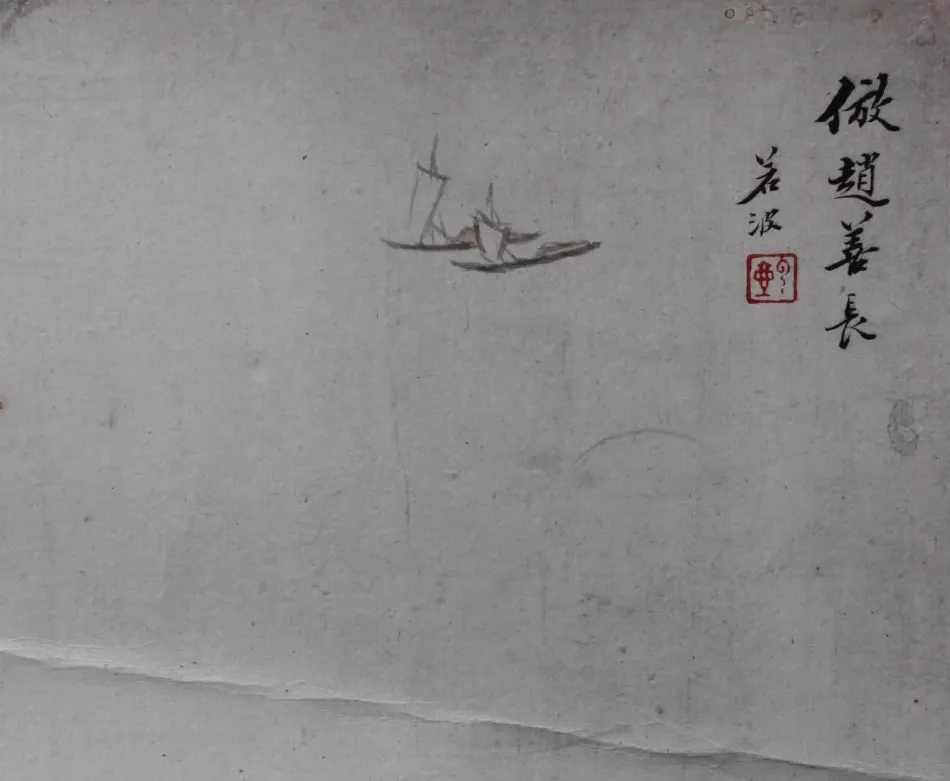 倣趙善長
若波